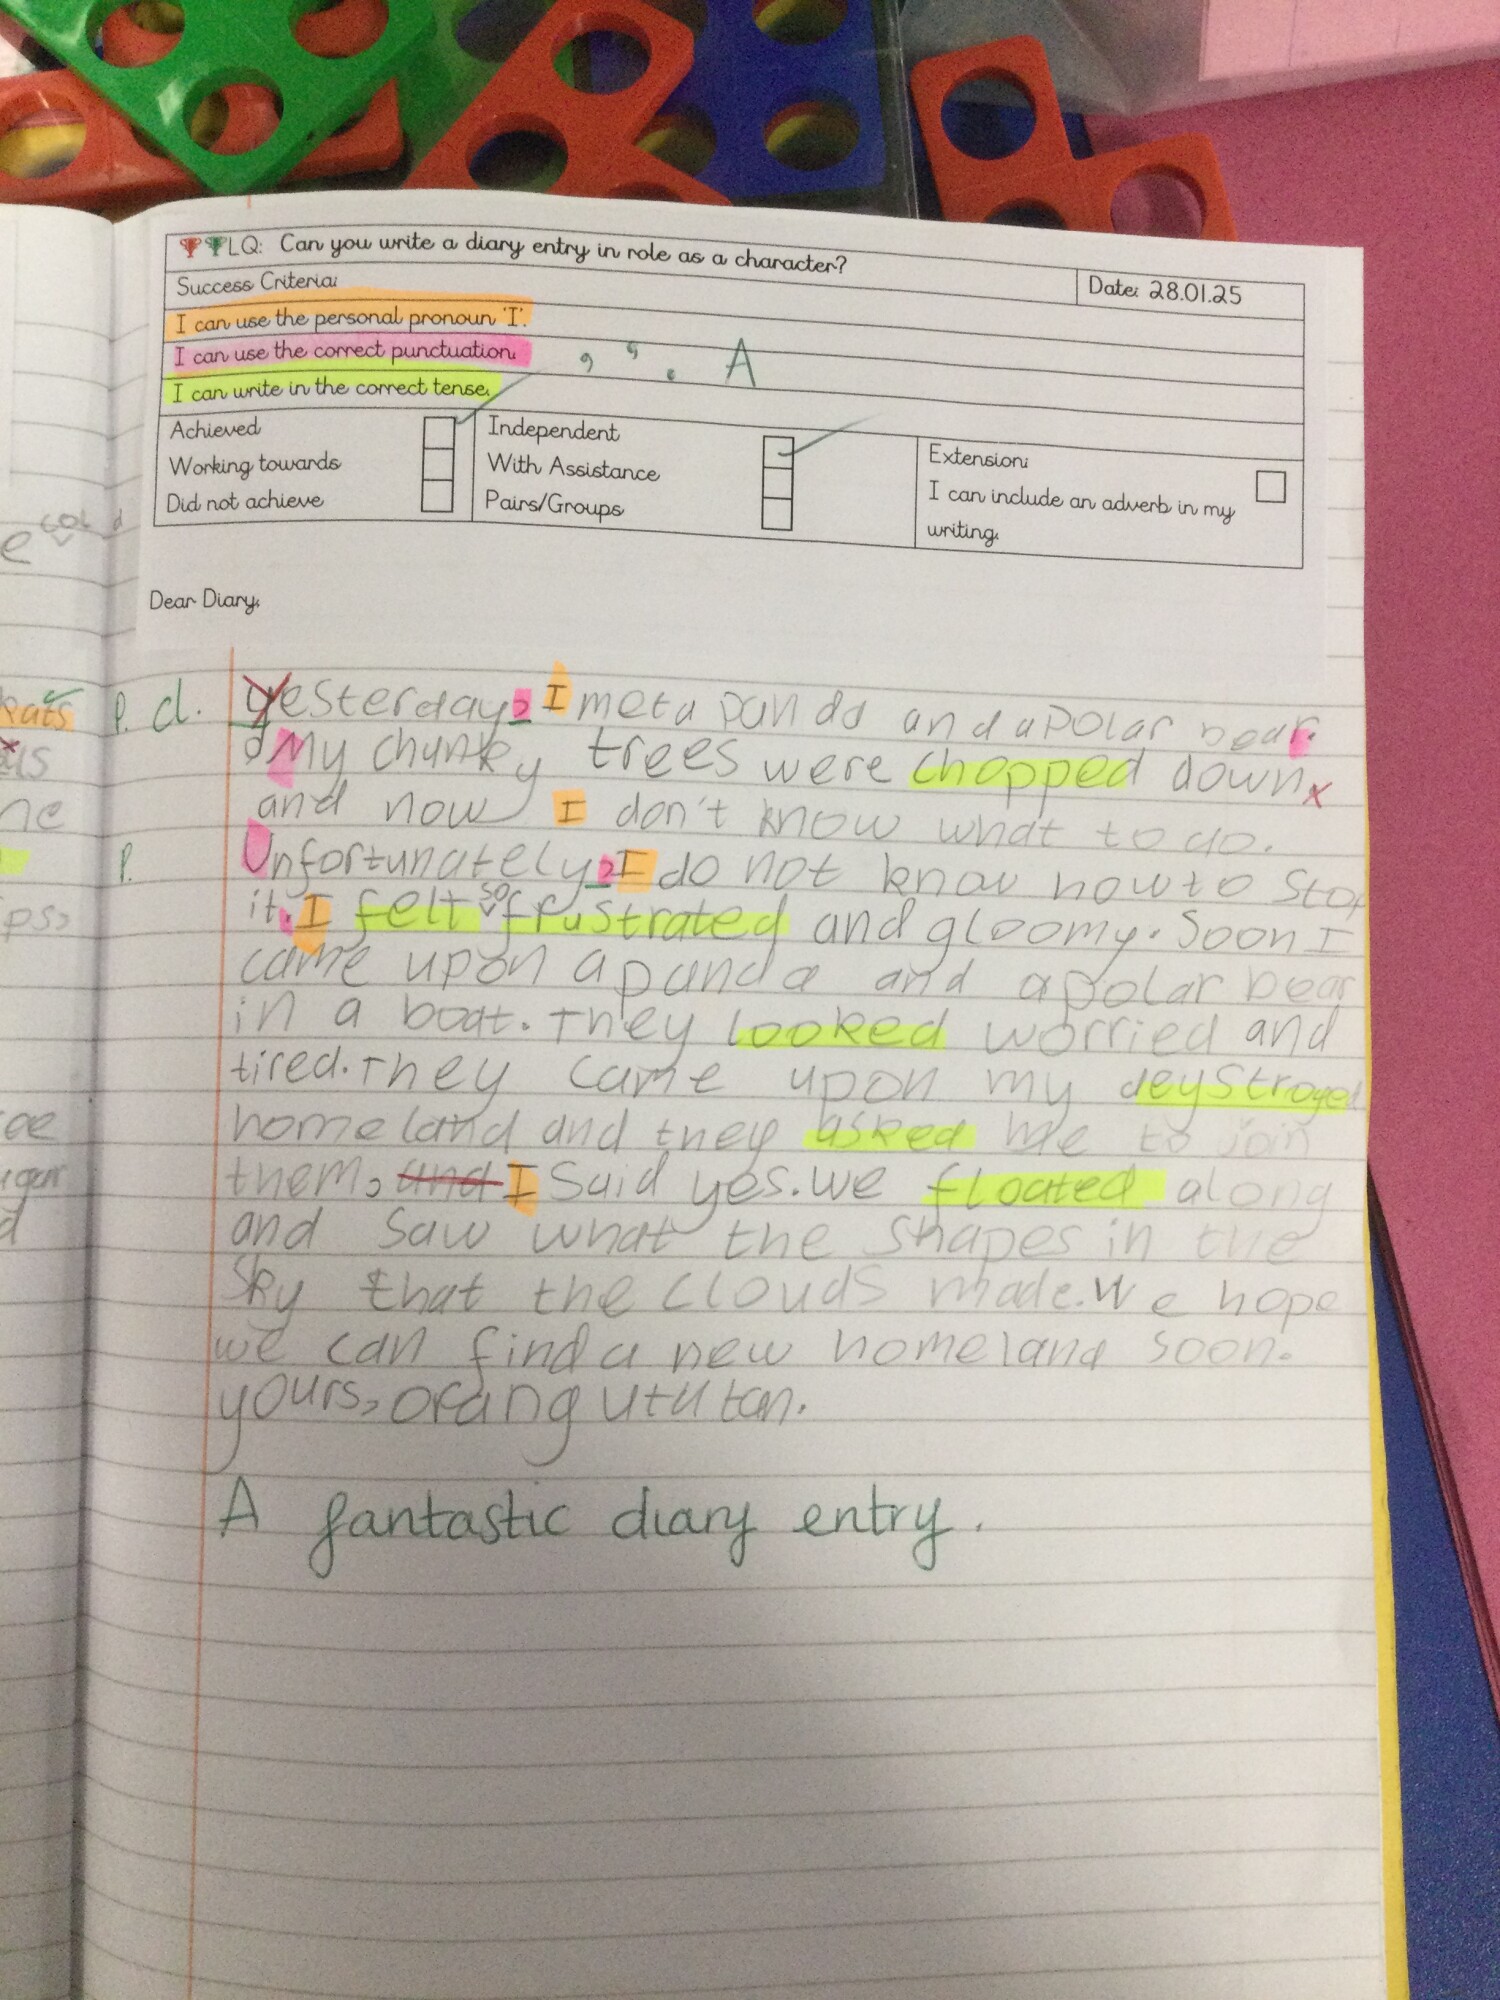 LQ: Can you write a diary entry in role as a character?
Success Criteria:
Date: 28.01.25
I can use the personal pronoun 'I'.
I can use the correct punctuation. , " . A
I can write in the correct tense.
Achieved
Working towards
Did not achieve
Independent
With Assistance
Pairs/Groups
Extension:
I can include an adverb in my
writing.
Dear Diary,
P. d. yesterday, I met a panda and a polar bear.
My chunky trees were chopped down
and now I don't know what to do.
P. Unfortunately, I do not know how to stop
it. I felt so frustrated and gloomy. Soon I
came upon a panda and a polar bear
in a boat. They looked worried and
tired. They came upon my deystroyed
homeland and they asked me to join
them, and I said yes. we floated along
and saw what the shapes in the
sky that the clouds made. We hope
we can find a new homeland soon.
yours, orang utu tan.
A fantastic diary entry.